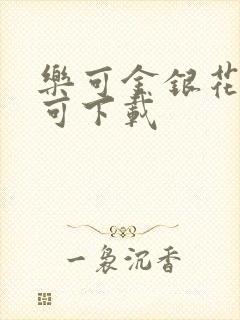 樂可金銀花
可下載
一裊沉香